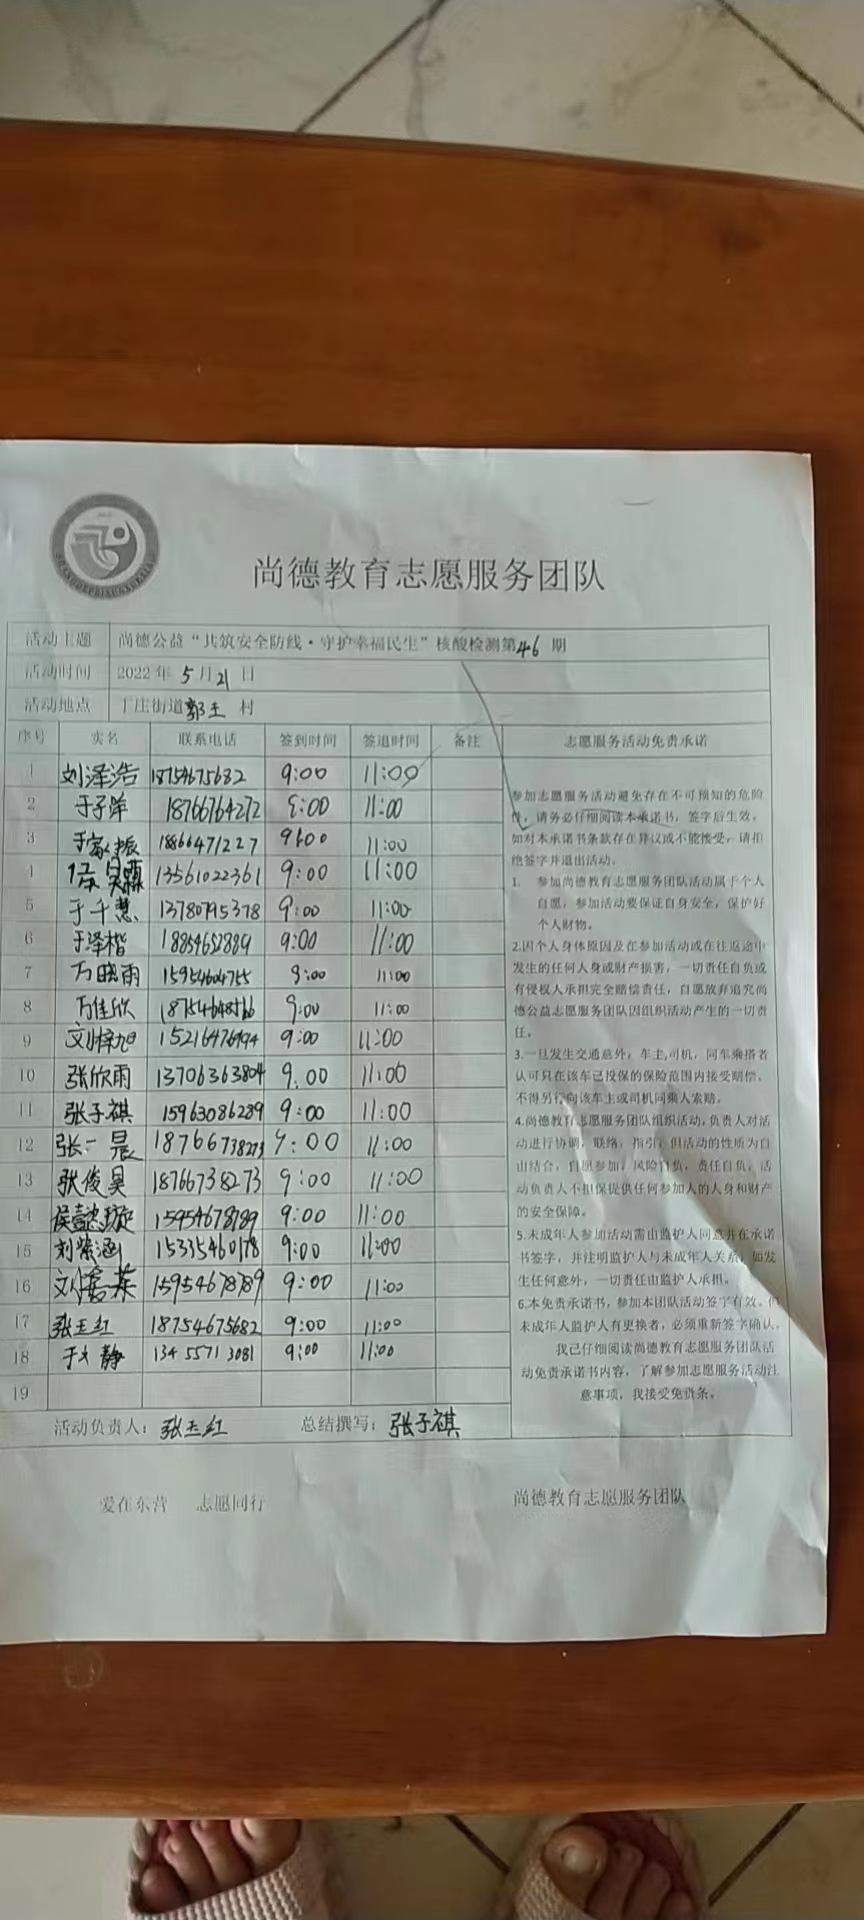 尚德教育志愿服务团队
活动主题 尚德公益“共筑安全防线·守护幸福民生”核酸检测第46期
活动时间 2022年5月21日
活动地点 丁庄街道郭王村
序号 实名 联系电话 签到时间 签退时间 备注 志愿服务活动免责承诺
1 刘泽浩 18754675682 9:00 11:00
2 于子洋 18766764272 9:00 11:00
3 于家振 18866471227 9:00 11:00
4 13561022361 9:00 11:00
5 于千慧 13780795378 9:00 11:00
6 于泽楷 18854652889 9:00 11:00
7 万晓雨 15954604755 9:00 11:00
8 万佳欣 9:00 11:00
9 刘梓旭 9:00 11:00
10 张欣雨 13706363804 9:00 11:00
11 张子祺 15963086289 9:00 11:00
12 张一晨 18766738273 9:00 11:00
13 张俊昊 18766738273 9:00 11:00
14 侯懿璇 15954678789 9:00 11:00
15 刘紫涵 15335460178 9:00 11:00
16 15954678789 9:00 11:00
17 张玉红 18754675682 9:00 11:00
18 于文静 13455713081 9:00 11:00
19
活动负责人：张玉红 总结撰写：张子祺
参加志愿服务活动避免存在不可预知的危险
性，请务必仔细阅读本承诺书，签字后生效。
如对本承诺书条款存在异议或不能接受，请拒
绝签字并退出活动。
1. 参加尚德教育志愿服务团队活动属于个人
自愿，参加活动要保证自身安全，保护好
个人财物。
2.因个人身体原因及在参加活动或在往返途中
发生的任何人身或财产损害，一切责任自负或
有侵权人承担完全赔偿责任，自愿放弃追究尚
德公益志愿服务团队因组织活动产生的一切责
任。
3.一旦发生交通意外，车主,司机，同车乘搭者
认可只在该车已投保的保险范围内接受赔偿，
不得另行向该车主或司机同乘人索赔。
4.尚德教育志愿服务团队组织活动，负责人对活
动进行协调，联络，指引，但活动的性质为自
由结合，自愿参加，风险自负，责任自负，活
动负责人不担保提供任何参加人的人身和财产
的安全保障。
5.未成年人参加活动需由监护人同意并在承诺
书签字，并注明监护人与未成年人关系，如发
生任何意外，一切责任由监护人承担。
6.本免责承诺书，参加本团队活动签字有效。但
未成年人监护人有更换者，必须重新签字确认。
我已仔细阅读尚德教育志愿服务团队活
动免责承诺书内容，了解参加志愿服务活动注
意事项，我接受免责条。
爱在东营 志愿同行 尚德教育志愿服务团队